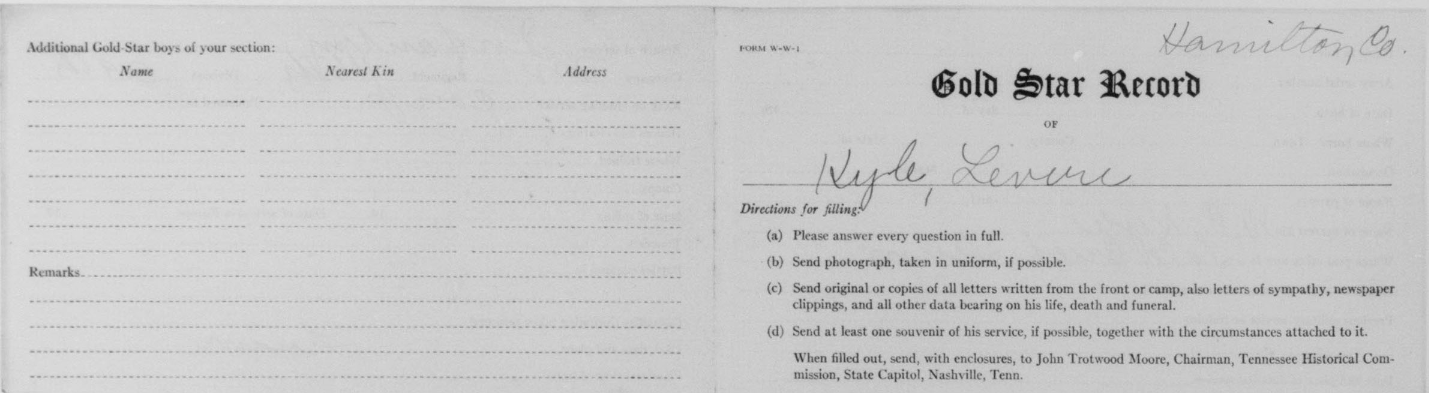 Additional Gold-Star boys of your section:
Name Nearest Kin Address
Remarks
FORM W-W-1
Hamilton, Co.
Gold Star Record
OF
Kyle, Levure
Directions for filling:
(a) Please answer every question in full.
(b) Send photograph, taken in uniform, if possible.
(c) Send original or copies of all letters written from the front or camp, also letters of sympathy, newspaper
clippings, and all other data bearing on his life, death and funeral.
(d) Send at least one souvenir of his service, if possible, together with the circumstances attached to it.
When filled out, send, with enclosures, to John Trotwood Moore, Chairman, Tennessee Historical Com-
mission, State Capitol, Nashville, Tenn.